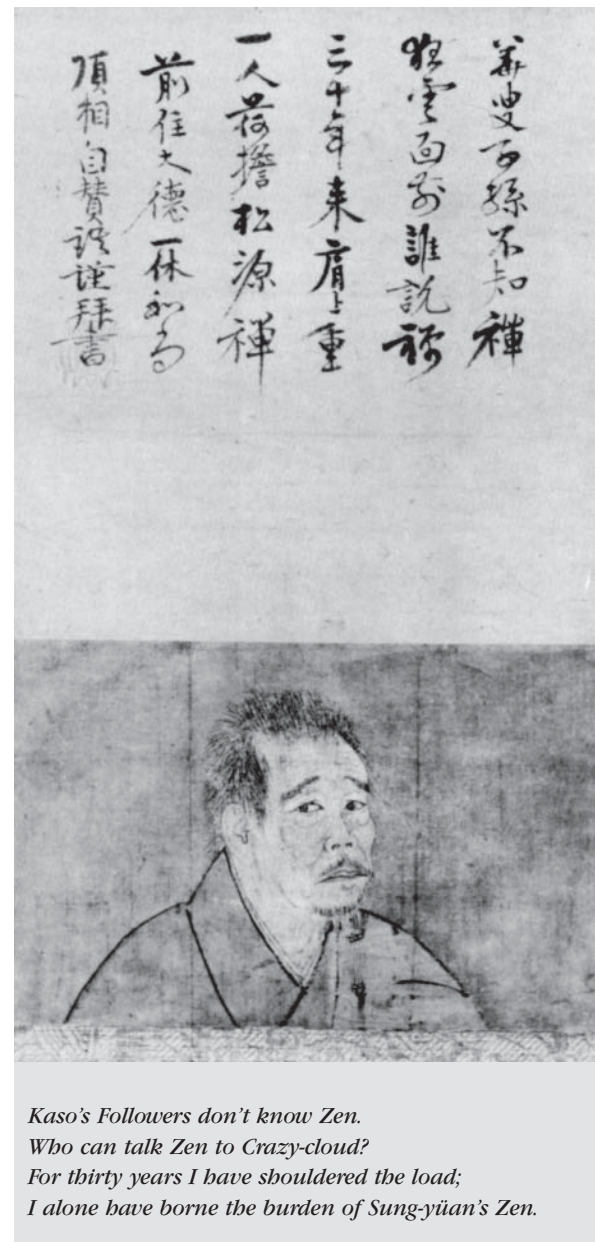 華叟子孫不知禅
狂雲面前誰説禅
三十年来肩上重
一人荷擔松源禅
前住大德一休和尚
頂相自賛謹拝書
Kaso's Followers don't know Zen.
Who can talk Zen to Crazy-cloud?
For thirty years I have shouldered the load;
I alone have borne the burden of Sung-yüan's Zen.